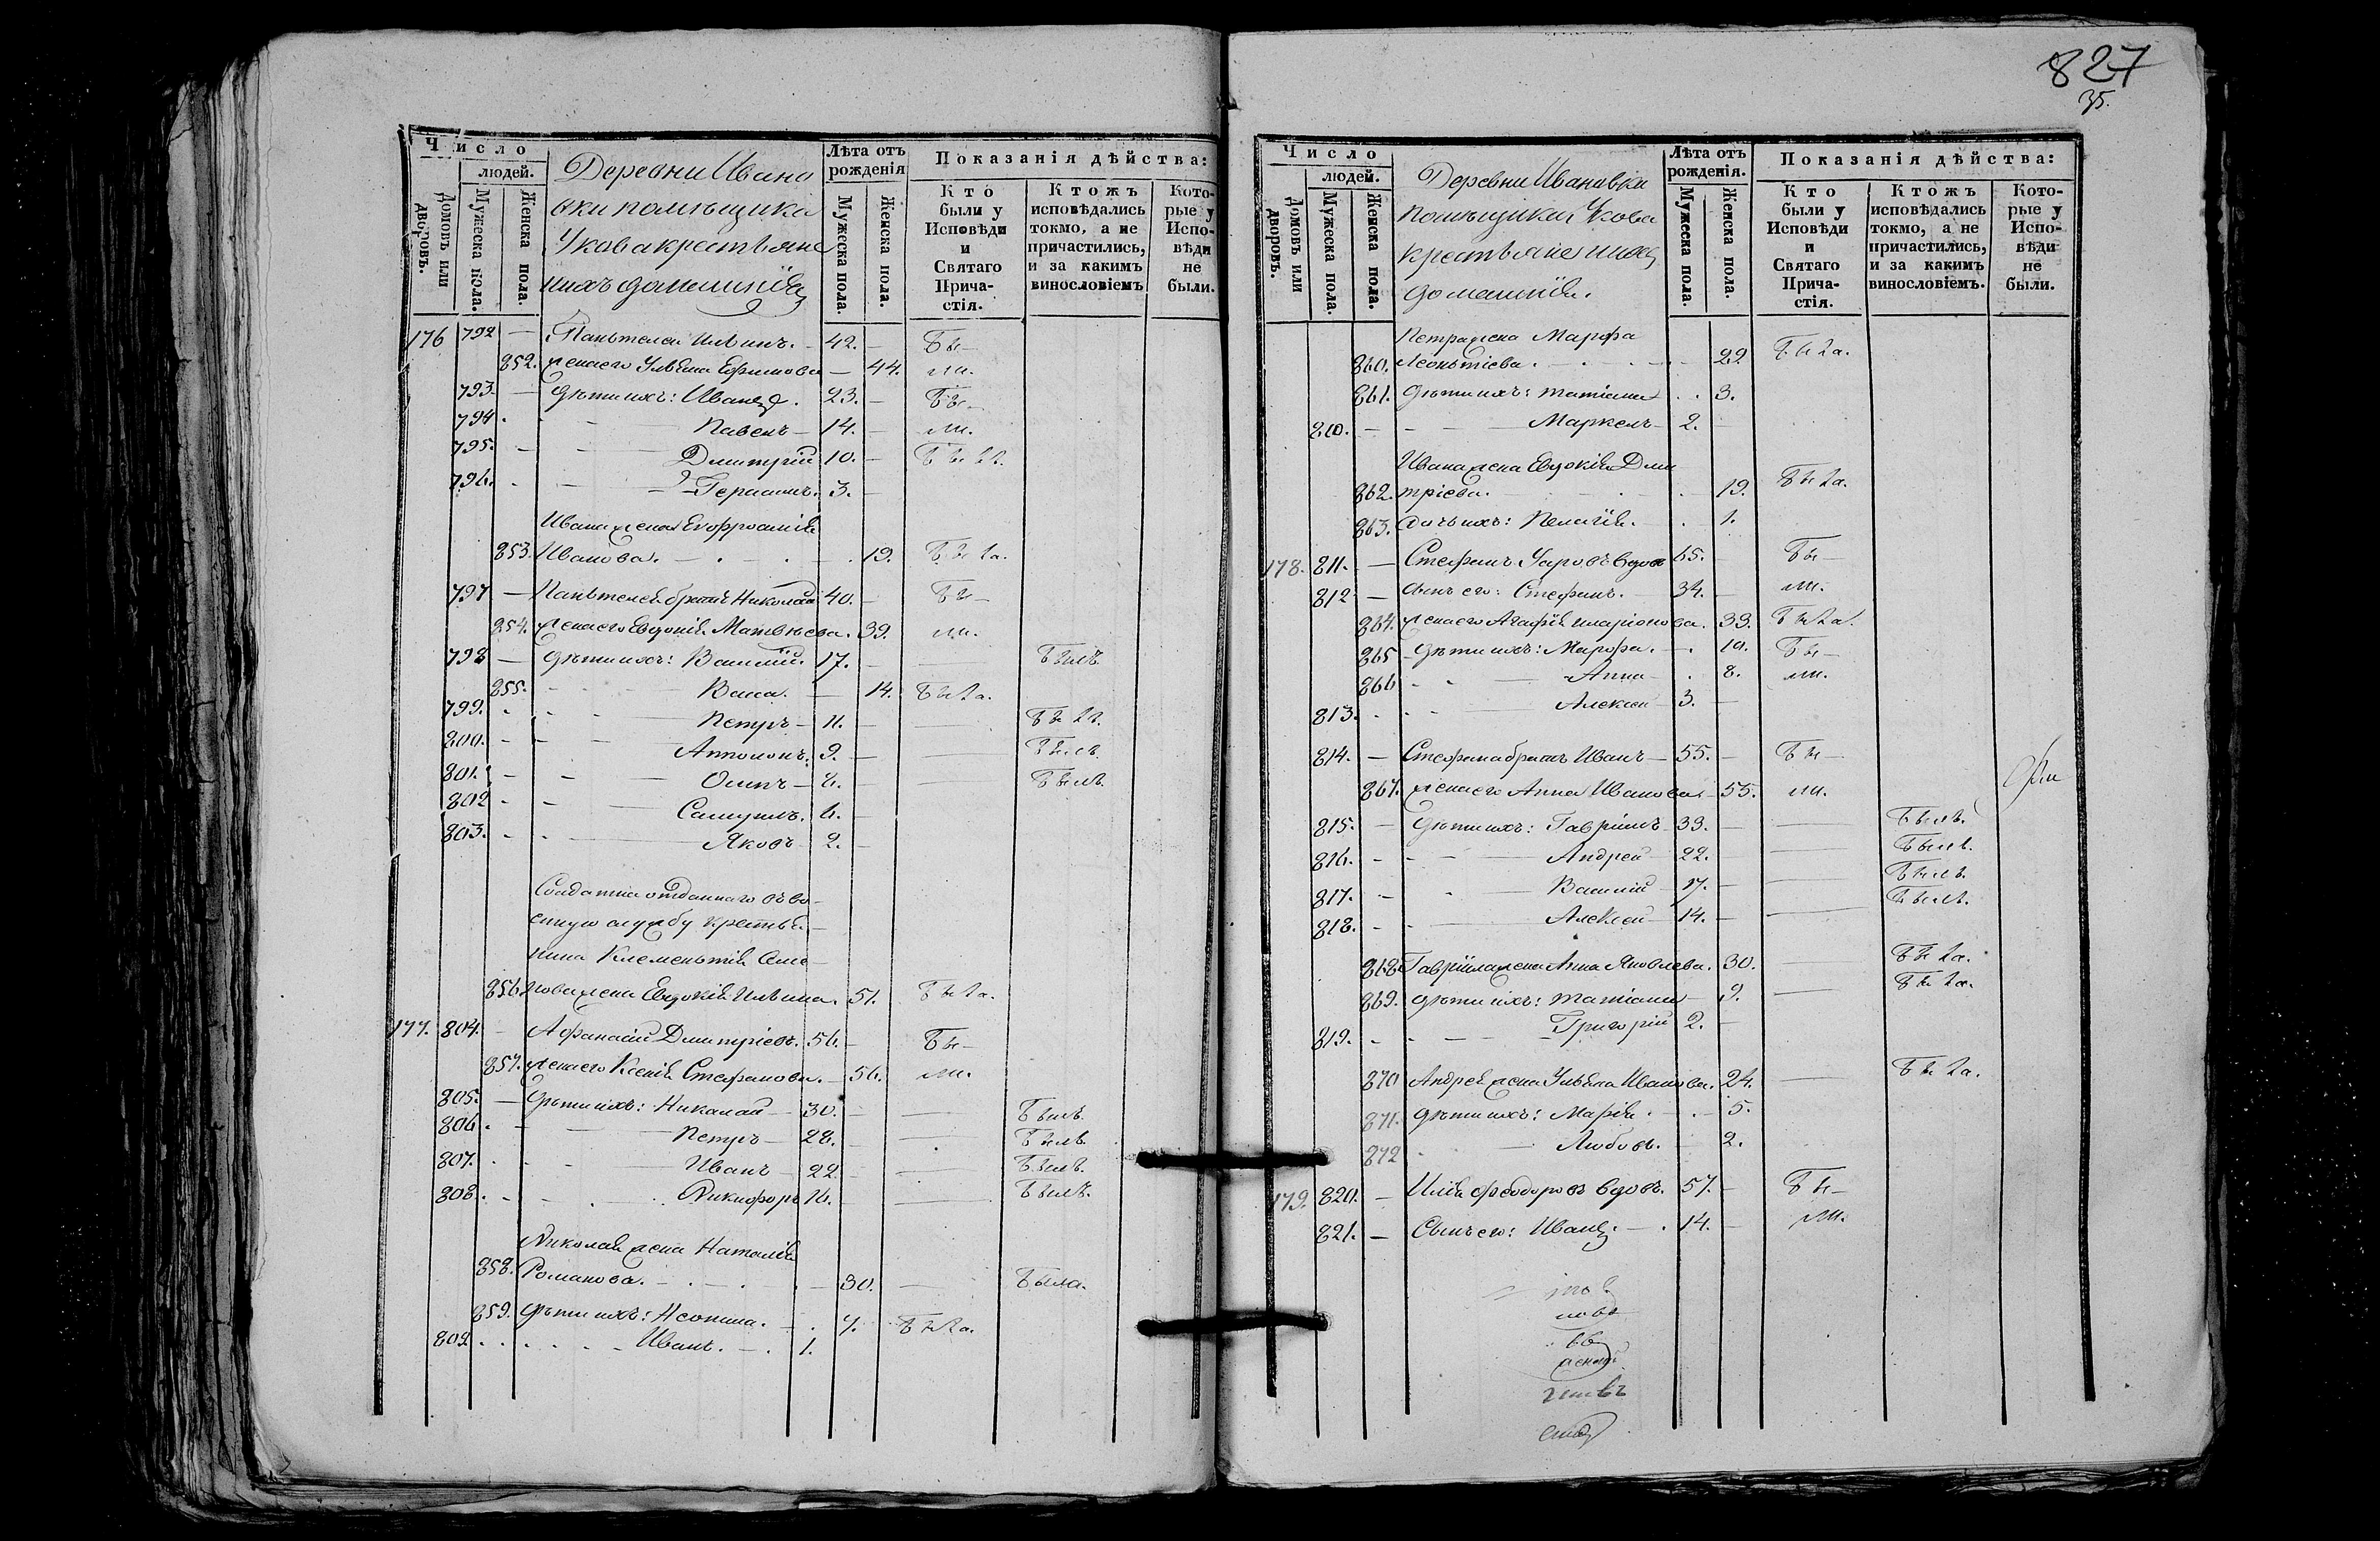 Число
людей.
Домовъ или дворовъ.
Мужеска пола.
Женска пола.
Деревни Ивано
вки помѣщика
Укова крестьяне
ихъ домашнія
Лѣта отъ рожденія
Мужеска пола.
Женска пола.
Показанія дѣйства:
Кто были у Исповѣди и Святаго Прича-стія.
Ктожъ исповѣдались токмо, а не причастились, и за какимъ винословіемъ
Кото-рые у Испо-вѣди не были.
176 792 — Паньтелей Ильинъ. 42. — Бы—
852. жена его Ульяна Ефимова — 44. ли.
793. — дѣти ихъ: Иванъ. 23. — Бы—
794. Павелъ — 14. — ли.
795. Димитрій 10. — былъ.
796. Герасимъ. 3. —
Ивана жена Евфросинія
853. Иванова. 19. была.
797 — Паньтелея братъ Николай 40. — Бы—
254. жена его Евдокія Матвѣева. 39. ли.
798 — дѣти ихъ: Василій. 17. — былъ.
855. Васса. — 14. была.
799. Петръ — 11. — былъ.
800. Апполонъ. 9. — былъ.
801. Осипъ — 8. — былъ.
802 Самуилъ. 6. —
803. Яковъ 2. —
Солдатка отданнаго въ во-
енную службу крестья-
нина Клеменьтія Семе-
856. нова жена Евдокія Ильина. 51. была.
177. 804. — Афанасій Димитріевъ. 56. — Бы—
857. жена его Ксенія Стефанова. — 56. ли.
805. — дѣти ихъ: Николай — 30. — былъ.
806. Петръ — 28. — былъ.
807. Иванъ 22 — былъ.
808. Никифоръ 16. — былъ.
Николая жена Наталія
858. Романова. 30. — была.
859. дѣти ихъ: Неонила. 7. была.
809. Иванъ. 1.
827
35.
Число
людей.
Домовъ или дворовъ.
Мужеска пола.
Женска пола.
Деревни Ивановки
помѣщика Укова
крестьяне и ихъ
домашнія.
Лѣта отъ рожденія.
Мужеска пола.
Женска пола.
Показанія дѣйства:
Кто были у Исповѣди и Святаго Прича-стія.
Ктожъ исповѣдались токмо, а не причастились, и за какимъ винословіемъ.
Кото-рые у Испо-вѣди не были.
Петра жена Марфа
860. Леоньтіева. 29. была.
861. дѣти ихъ: Татіана 3.
810. Маркелъ 2.
Ивана жена Евдокія Дми
862. тріева. 19. была.
863. дочь ихъ: Пелагія. 1.
178. 811. — Стефанъ Уаровъ вдовъ 65. — Бы—
812 — сынъ его: Стефанъ. 34. — ли.
864. жена его Агафія Иларіонова. 33. была.
865 дѣти ихъ: Марфа. 10. Бы—
866 Анна 8. ли.
813. Алексѣй 3. —
814. — Стефана братъ Иванъ — 55. — Бы—
867. жена его Анна Иванова 55. ли.
815. — дѣти ихъ: Гавріилъ 33. — былъ.
816. Андрей 22. — былъ.
817. Василій 17. — былъ.
818. Алексѣй 14. — былъ.
868 Гавріила жена Анна Яковлева. 30. — была.
869. дѣти ихъ: Татіана 9. — была.
819. Григорій 2. —
870 Андрея жена Ульяна Иванова. 24. — была.
871. дѣти ихъ: Марія. 5.
872 Любовь. 2.
179. 820. — Илія Феодоровъ вдовъ. 57. — Бы—
821. — Сынъ его: Иванъ. 14. — ли.